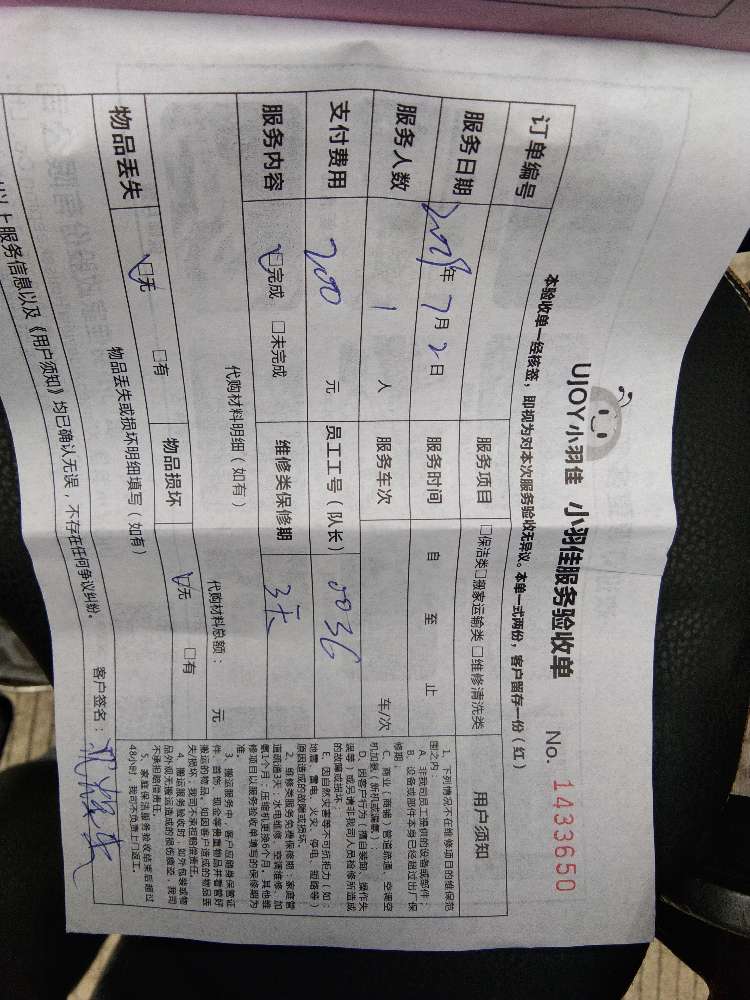 UJOY小羽佳 小羽佳服务验收单 No. 1433650
本验收单一经核签，即视为对本次服务验收无异议。本单一式两份，客户留存一份（红）
订单编号 服务项目 □保洁类□搬家运输类□维修清洗类
服务日期 年 7月2日 服务时间 自 至 止
服务人数 1 人 服务车次 车/次
支付费用 200 元 员工工号（队长） 0036
服务内容 ☑完成 □未完成 维修类保修期 3天
代购材料明细（如有） 代购材料总额： 元
物品丢失 ☑无 □有 物品损坏 ☑无 □有
物品丢失或损坏明细填写（如有）
以上服务信息以及《用户须知》均已确认无误，不存在任何争议纠纷。 客户签名：
用户须知
1、下列情况不在维修项目的维保范
围之内：
A、非我司员工提供的设备或部件；
B、设备或部件本身已经超过出厂保
修期；
C、商业（商铺）管道疏通、空调空
机加氨（拆机或漏氨）；
D、因客户行为（擅自装卸、操作失
误等）或另请非我司人员检修所造成
的故障或损坏。
E、因自然灾害等不可抗拒力（如：
地震、雷电、火灾、停电、短路等）
原因造成的故障或损坏。
2、维修类服务免费保修期：家庭管
道疏通3天，水电维修、空调维修、加
氨1个月，压缩机更换6个月。其他维
修项目以服务验收单填写的保修期为
准。
3、搬运服务中，客户应随身保管证
件、首饰、现金等贵重物品并看管好
搬运的物品，如因客户造成的物品丢
失/损坏，我司不承担赔偿责任。
4、搬运服务验收时，如外包装或物
品外观无搬运造成的损伤痕迹，我司
不承担赔偿责任。
5、家庭保洁服务验收结束后超过
48小时，我司不负责上门返工。